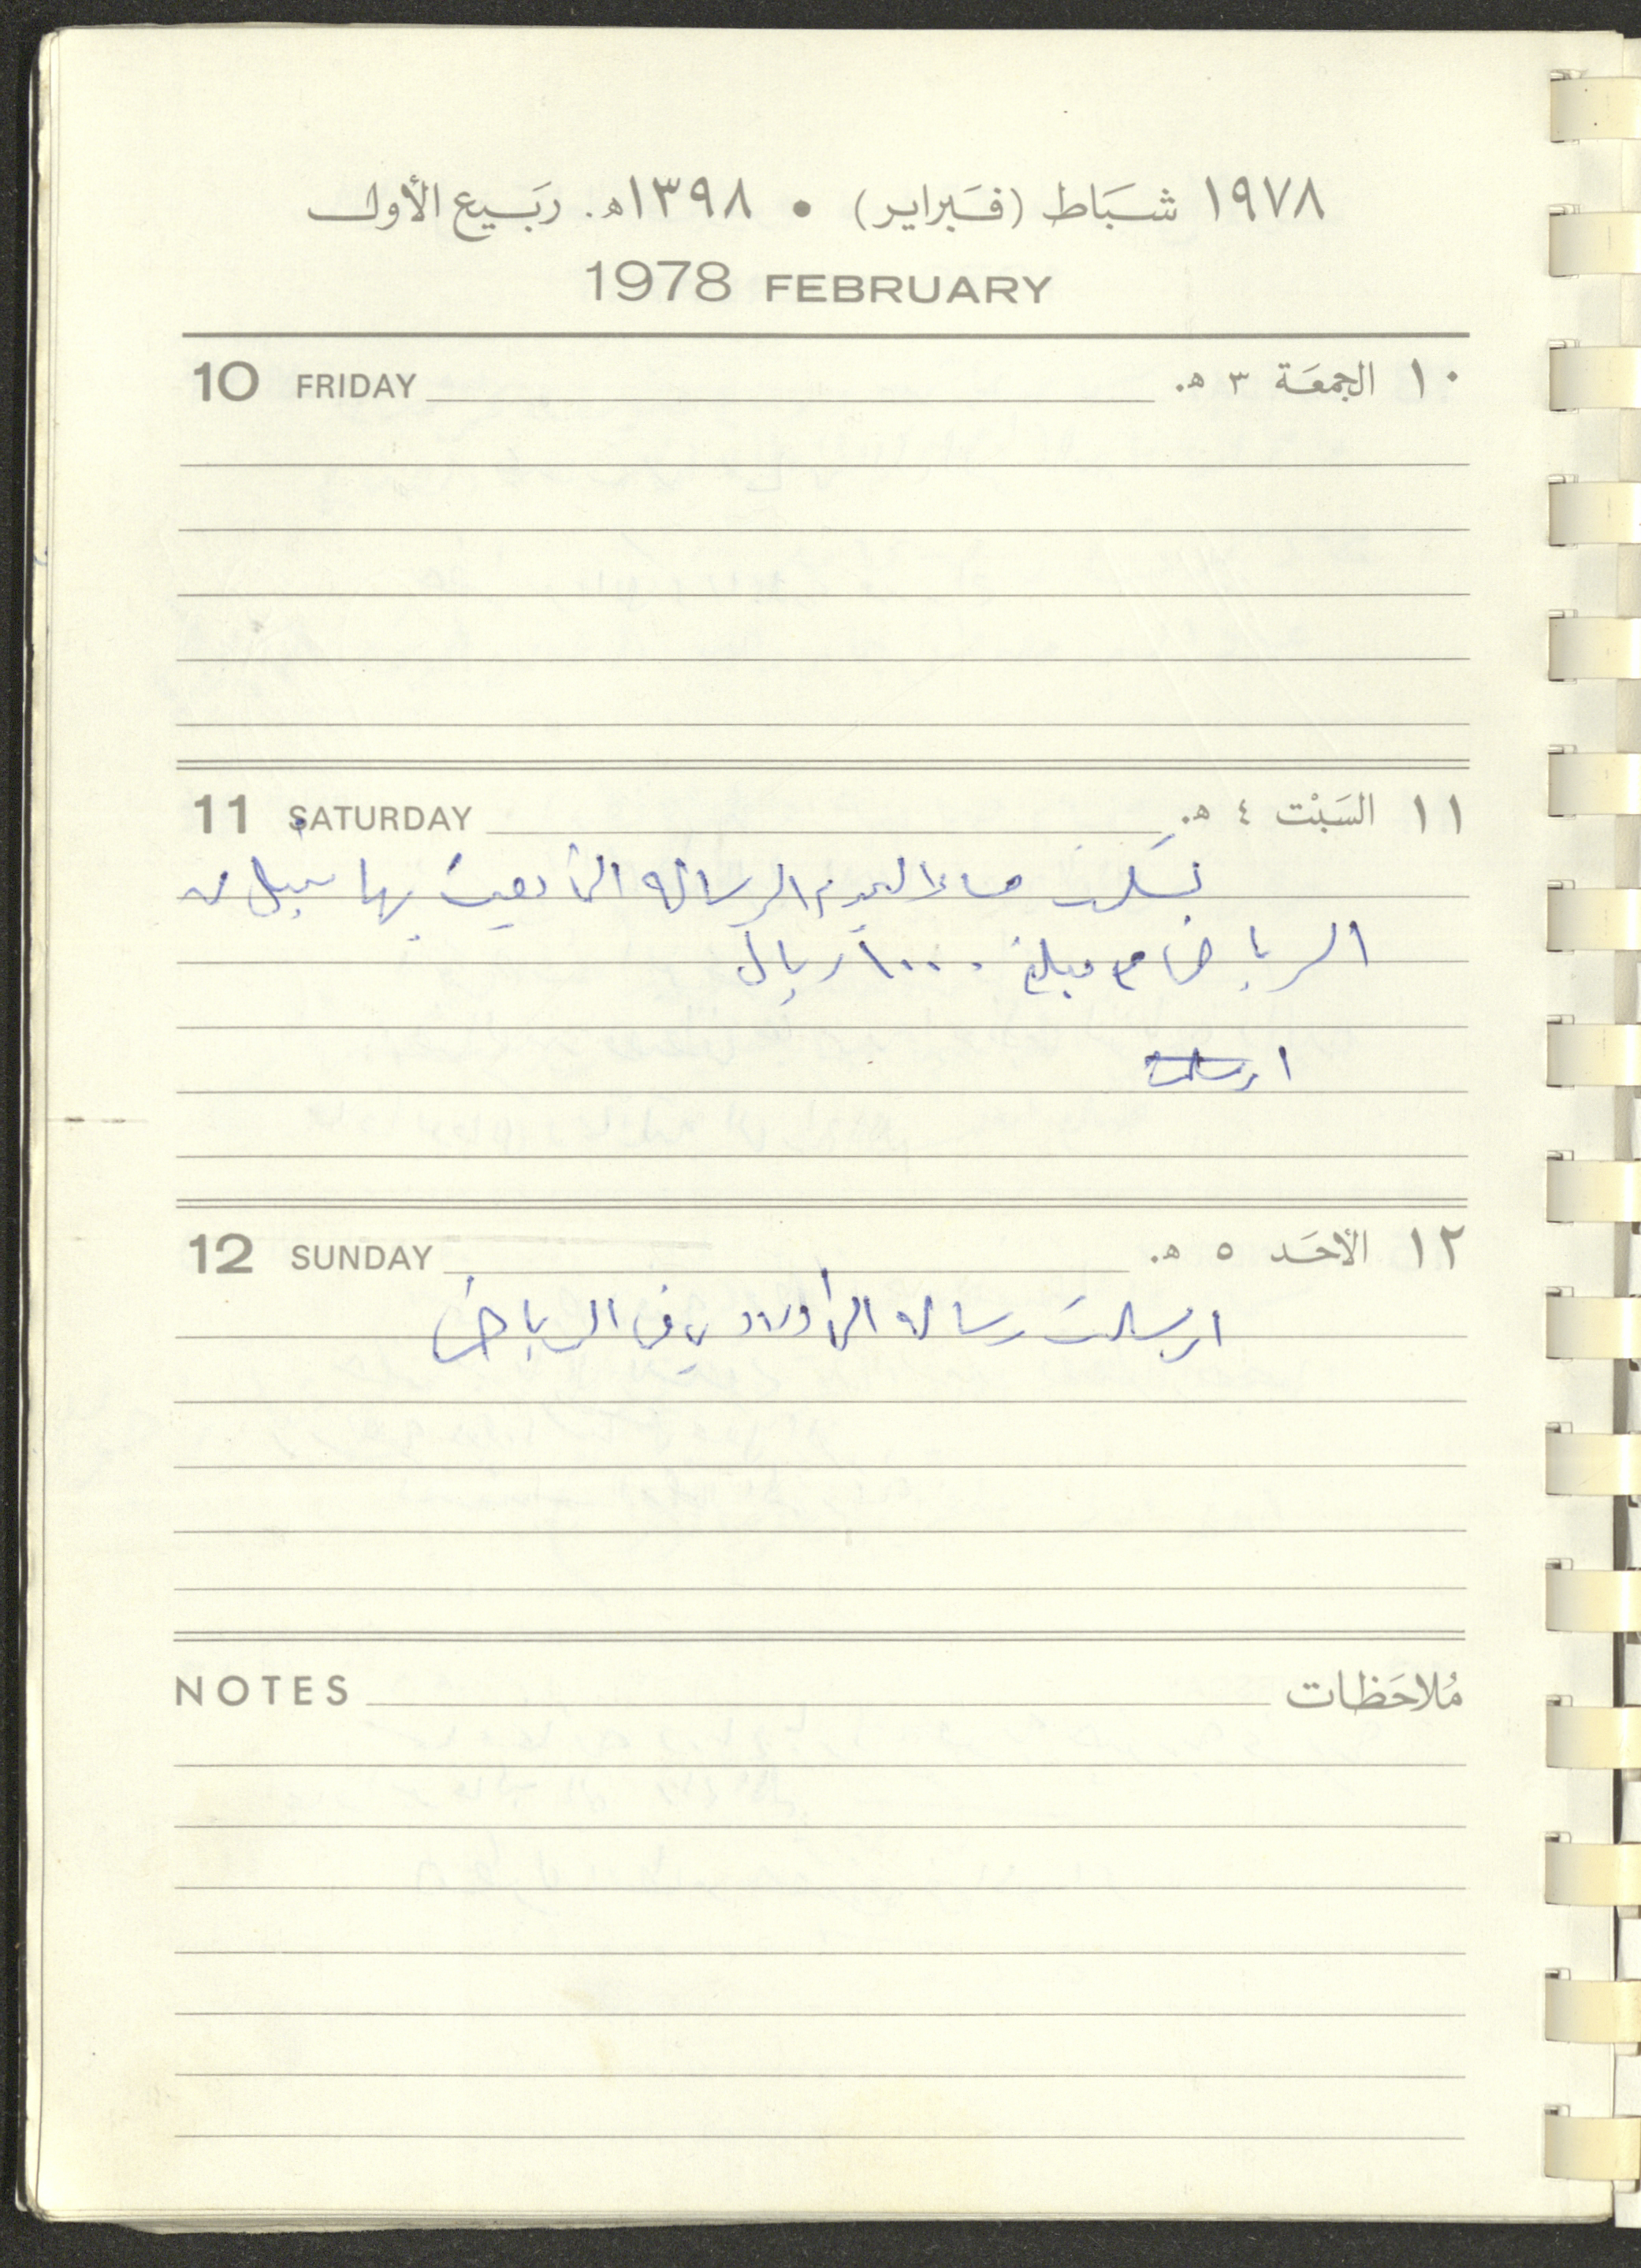 ١٩٧٨ شَبَاط (فَبراير) • ١٣٩٨هـ. رَبَيع الأول
1978 FEBRUARY
10 FRIDAY ١٠ الجمعَة ٣ هـ.
11 SATURDAY ١١ السَبْت ٤ هـ.
تسلمت مساء اليوم الرسالة التي بعث بها نبيل من
الرياض مع مبلغ ١٠٠٠ ريال
ارسلت
12 SUNDAY ١٢ الأحَد ٥ هـ.
ارسلت رسالة الى أولادي في الرياض
NOTES مُلاحَظات